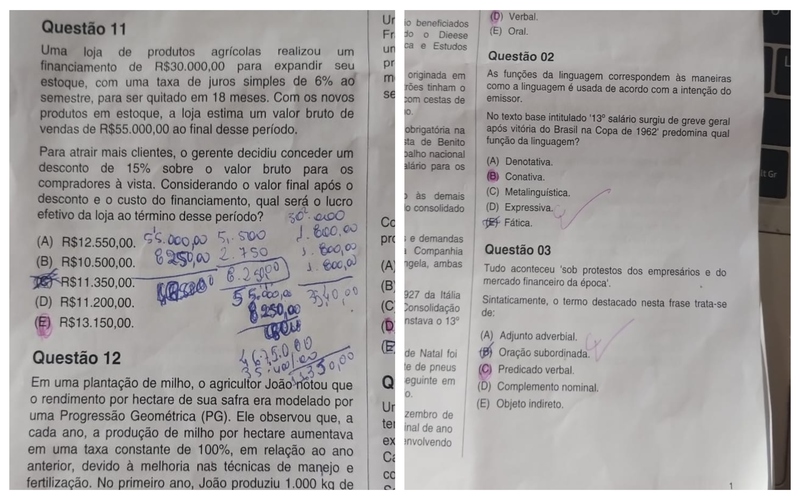 Questão 11
Uma loja de produtos agrícolas realizou um
financiamento de R$30.000,00 para expandir seu
estoque, com uma taxa de juros simples de 6% ao
semestre, para ser quitado em 18 meses. Com os novos
produtos em estoque, a loja estima um valor bruto de
vendas de R$55.000,00 ao final desse período.
Para atrair mais clientes, o gerente decidiu conceder um
desconto de 15% sobre o valor bruto para os
compradores à vista. Considerando o valor final após o
desconto e o custo do financiamento, qual será o lucro
efetivo da loja ao término desse período?
(A) R$12.550,00.
(B) R$10.500,00.
(C) R$11.350,00.
(D) R$11.200,00.
(E) R$13.150,00.
55.000,00
8250,00
5.500
2.750
8.250,00
30.000
1.800,00
1.800,00
1.800,00
55.000,00
8250,00
Questão 12
Em uma plantação de milho, o agricultor João notou que
o rendimento por hectare de sua safra era modelado por
uma Progressão Geométrica (PG). Ele observou que, a
cada ano, a produção de milho por hectare aumentava
em uma taxa constante de 100%, em relação ao ano
anterior, devido à melhoria nas técnicas de manejo e
fertilização. No primeiro ano, João produziu 1.000 kg de
io beneficiados
do o Dieese
ca e Estudos
originada em
rões tinham o
com cestas de
obrigatória na
sta de Benito
balho nacional
alário para os
o às demais
lo consolidado
e demandas
Companhia
ngela, ambas
927 da Itália
Consolidação
nstava o 13º
de Natal foi
te de pneus
eguinte em
zembro de
inal de ano
envolvendo
(D) Verbal.
(E) Oral.
Questão 02
As funções da linguagem correspondem às maneiras
como a linguagem é usada de acordo com a intenção do
emissor.
No texto base intitulado '13º salário surgiu de greve geral
após vitória do Brasil na Copa de 1962' predomina qual
função da linguagem?
(A) Denotativa.
(B) Conativa.
(C) Metalinguística.
(D) Expressiva.
(E) Fática.
Questão 03
Tudo aconteceu 'sob protestos dos empresários e do
mercado financeiro da época'.
Sintaticamente, o termo destacado nesta frase trata-se
de:
(A) Adjunto adverbial.
(B) Oração subordinada.
(C) Predicado verbal.
(D) Complemento nominal.
(E) Objeto indireto.
1